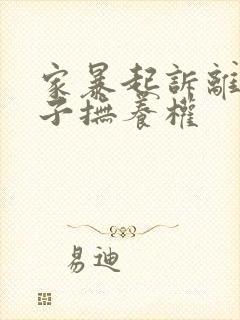 家暴起訴離
子撫養權
易迪